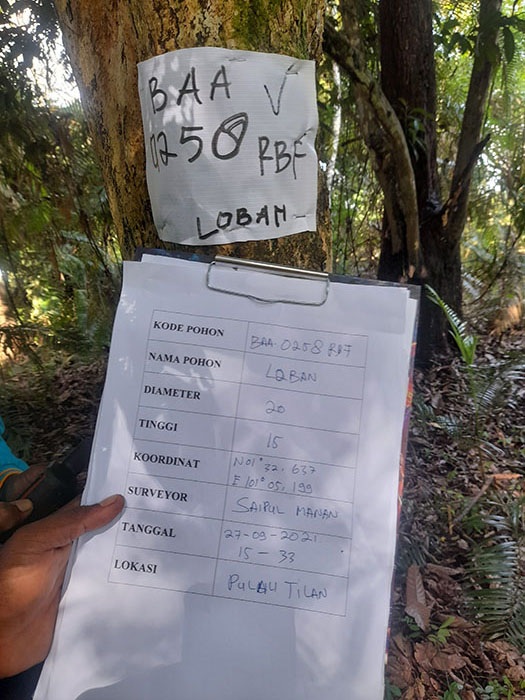 BAA √
0258 RBF
LOBAN
KODE POHON BAA. 0258 RBF
NAMA POHON LOBAN
DIAMETER 20
TINGGI 15
KOORDINAT N 01° 32. 637
E 101° 05. 199
SURVEYOR SAIPUL MANAN
TANGGAL 27-09-2021
15-33
LOKASI PULAU TILAN